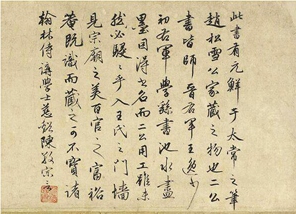 此書有元鮮于太常之筆
趙松雪公家藏之物也二公
書皆師晉右軍王逸少
初右軍學繇書池水盡
墨因得名而二公用工雖
然必駸駸乎入王氏之門墻
見宗廟之美百官之富裕
齋既識而藏之可不寶諸
翰林侍講學士慈谿陳敬宗